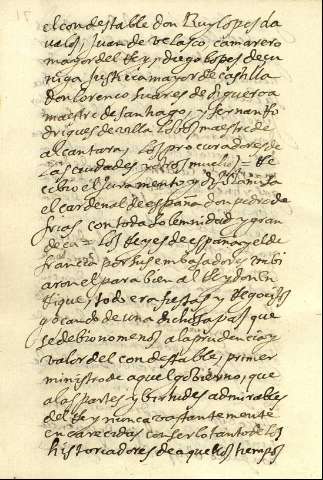 el condestable don Ruy lopes da
valos, Juan de velasco, camarero
mayor del Rey, diego lopes de cu
niga Justicia mayor de castilla
don lorenco suares de figueroa
maestre de santiago, y fernan Ro
drigues de villa lobos maestre de
alcantara, los procuradores de
las ciudades y otros muchos = Re
cibio el juramento y
el cardenal de españa don pedro de
frias con toda solemnidad y gran
deça = los Reyes de españa y el de
francia por sus embajadores inbi
aron el para bien al Rey don en
Rique, todo era fiestas y Regocijos
goçando de una dichossa pas que
se debio no menos a la prudencia y
valor del condestable, primer
ministro de aquel gobierno, que
a las partes y birtudes admirables
del Rey nunca vastantemente
encarecidas con ser lo tanto de los
historiadores de aquellos tiempos